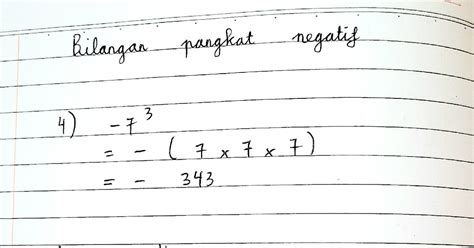 Bilangan pangkat negatif
4) -7³
= - ( 7 × 7 × 7)
= - 343